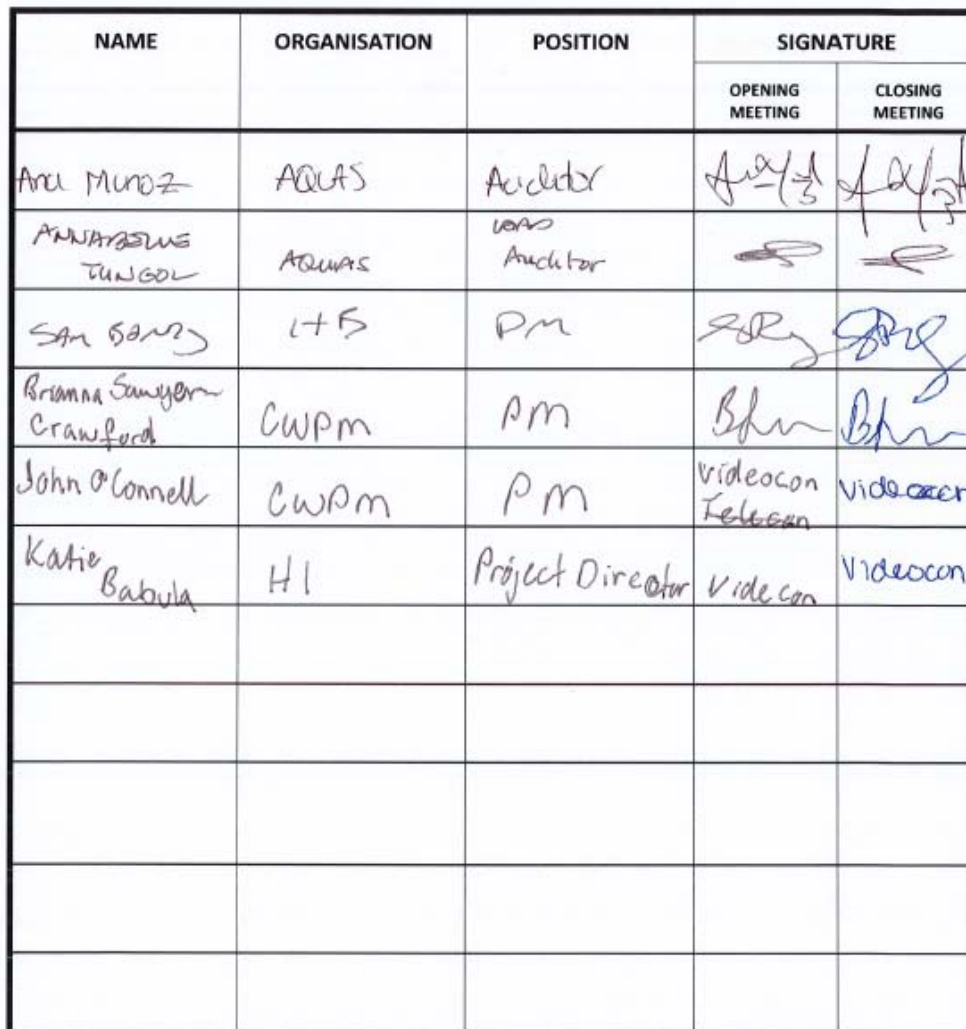 NAME ORGANISATION POSITION SIGNATURE
OPENING MEETING CLOSING MEETING
Ana MUNOZ AQUAS Auditor
ANNABELLE TUNGOL AQUAS LEAD Auditor
SAM PM
Brianna Sawyer Crawford CWPM PM
John O'Connell CWPM PM Videocon Telecon Videocon
Katie Babula HI Project Director Videcon Videocon